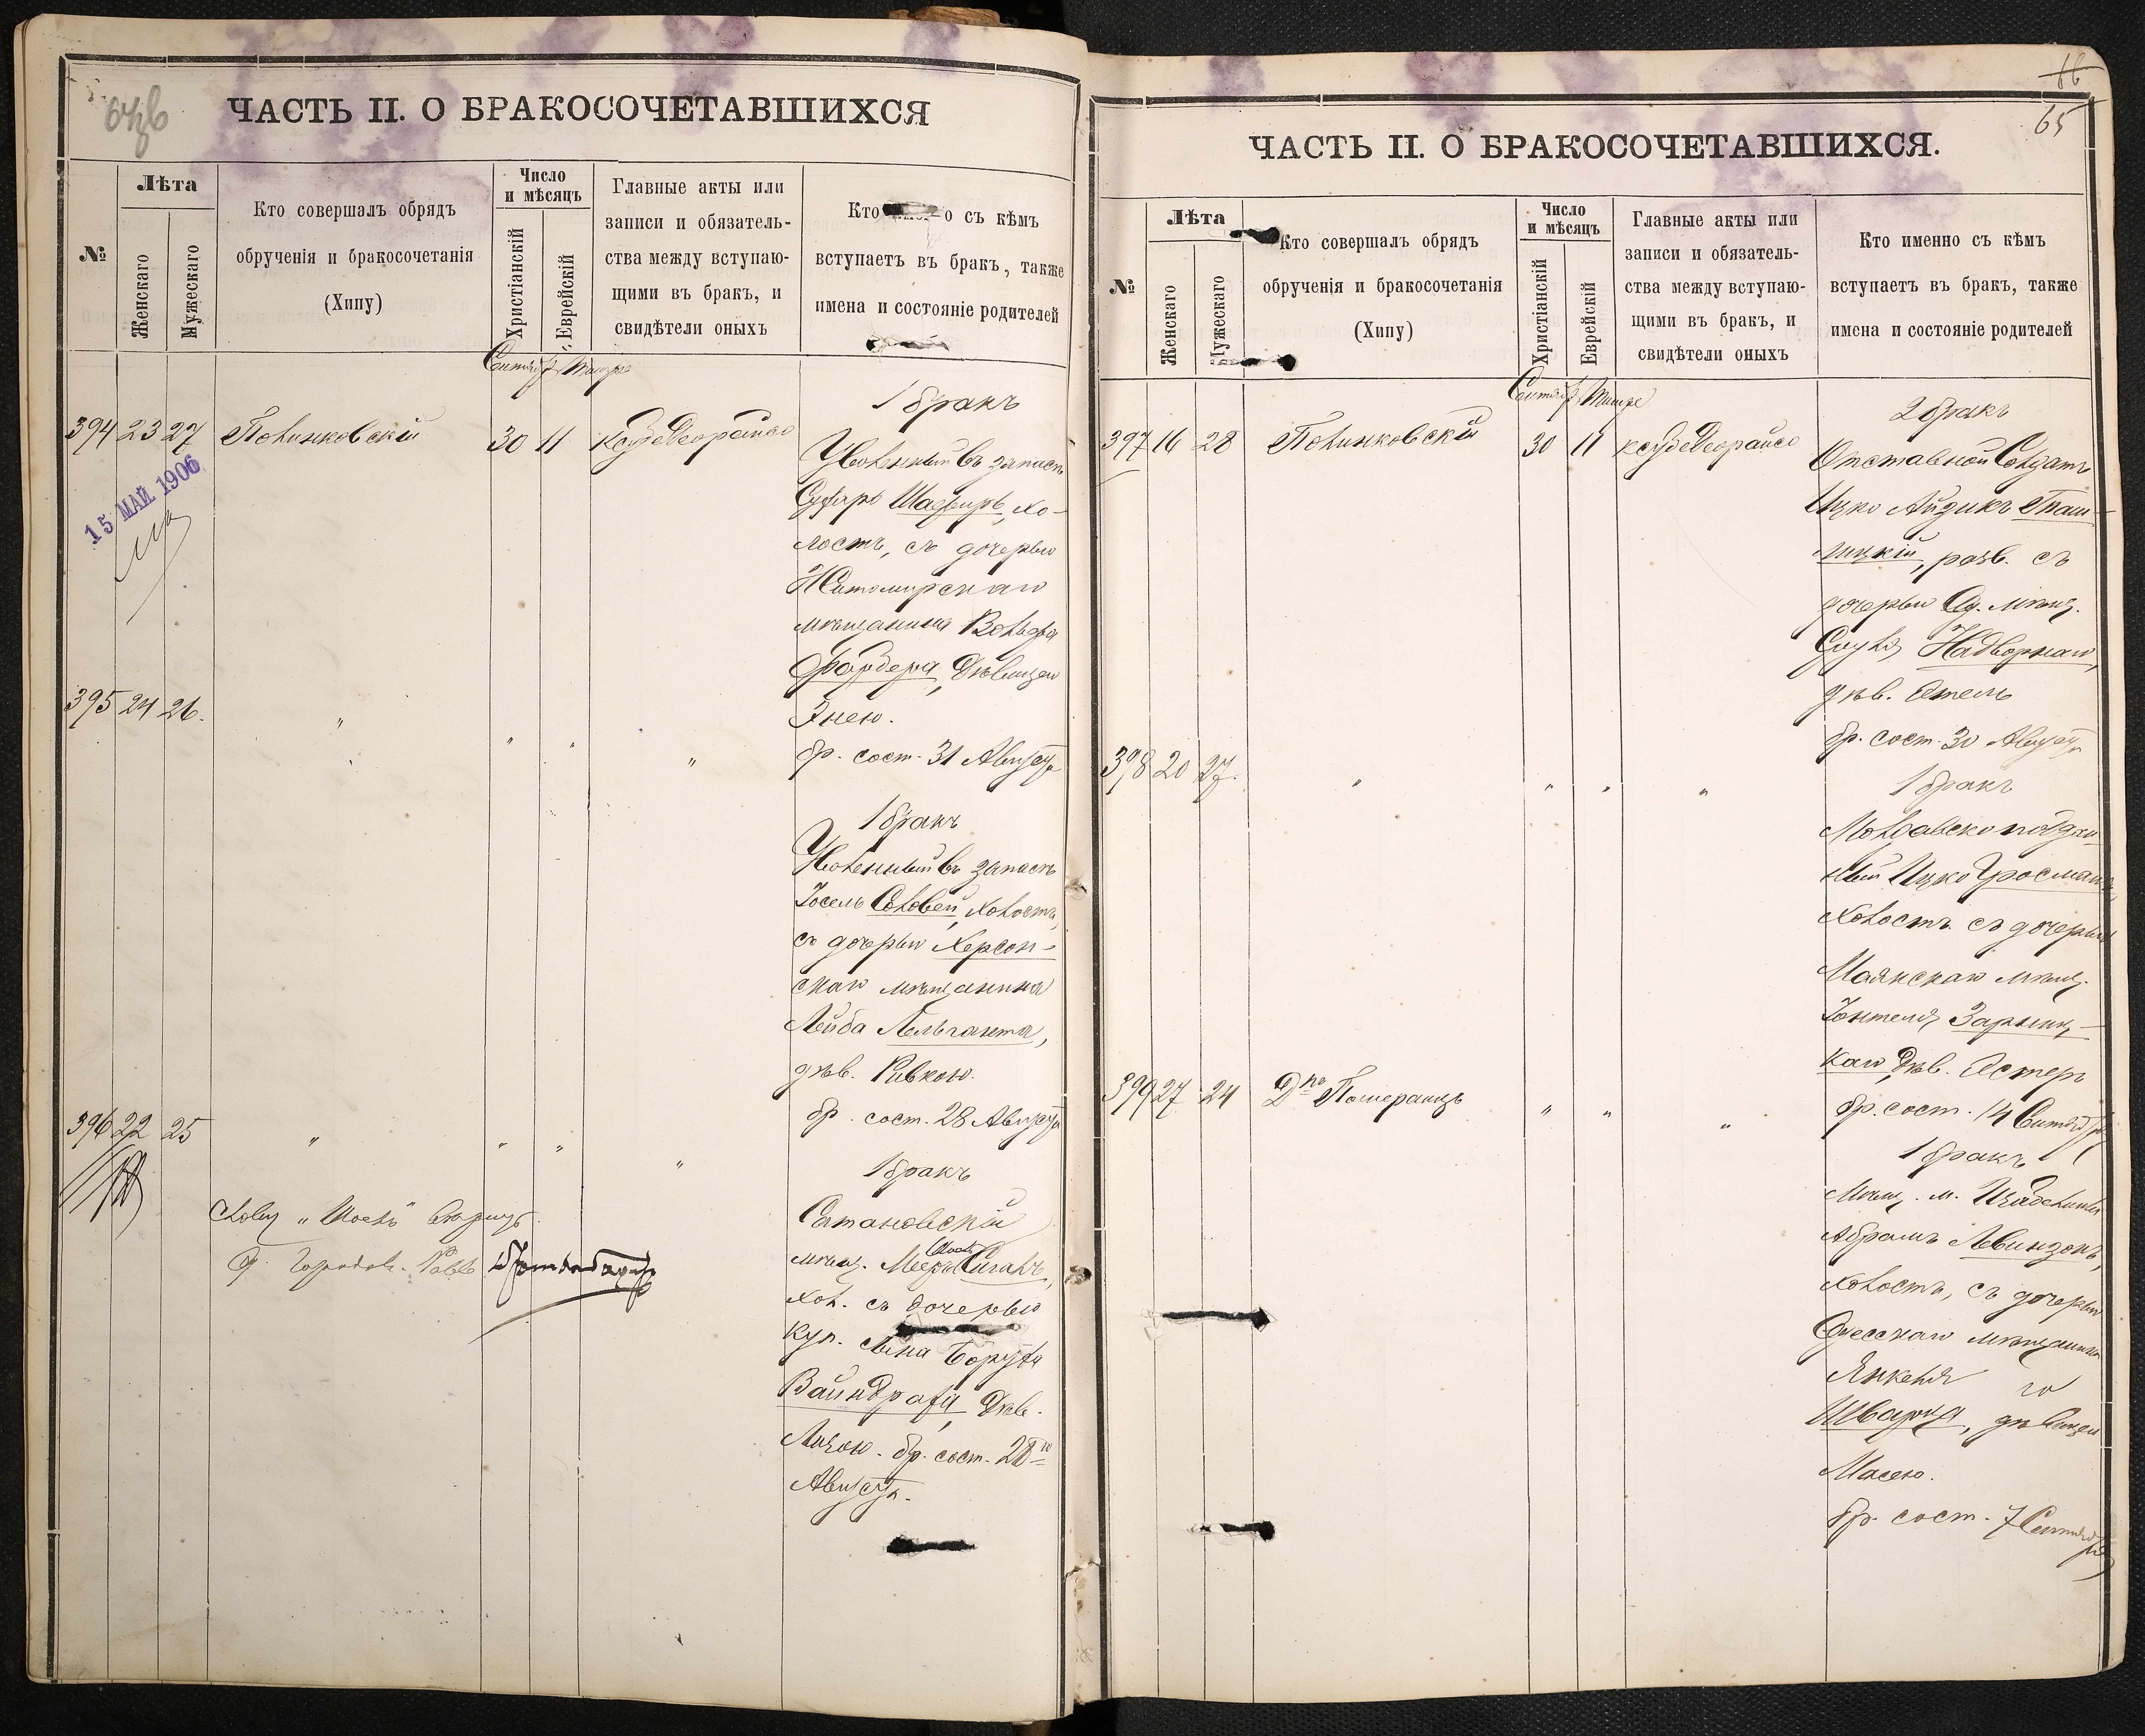 64об
ЧАСТЬ II. О БРАКОСОЧЕТАВШИХСЯ
№
Лѣта
Женскаго
Мужескаго
Кто совершалъ обрядъ
обрученія и бракосочетанія
(Хипу)
Число
и мѣсяцъ
Христіанскій
Еврейскій
Главные акты или
записи и обязатель-
ства между вступаю-
щими въ бракъ, и
свидѣтели оныхъ
Кто о съ кѣмъ
вступаетъ въ бракъ, также
имена и состояніе родителей
Сентябр Тишре
394 23 27 Полинковскій 30 11
15 МАЙ 1906
1 бракъ
Уволенный въ запасъ
Шафиръ, хо-
лостъ, съ дочерью
Житомирскаго
мѣщанина Вольфа
Фарбера, дѣвицею
Энею.
бр. сост. 31 Августа
395 24 26. " " " "
1 бракъ
Уволенный въ запасъ
Іосель Соловей, холостъ,
съ дочерью Херсон-
скаго мѣщанина
Лейба Гельганта,
дѣв. Ривкою.
бр. сост. 28 Августа
396 22 25 " " " "
1 бракъ
Сатановскій
мѣщ. Мееръ Сигалъ,
хол. съ дочерью
куп. сына Боруха
Вайнтрауба, дѣв.
Лизою. бр. сост. 28го
Августа.
Городов.
66
65
ЧАСТЬ II. О БРАКОСОЧЕТАВШИХСЯ.
№
Лѣта
Женскаго
Мужескаго
Кто совершалъ обрядъ
обрученія и бракосочетанія
(Хипу)
Число
и мѣсяцъ
Христіанскій
Еврейскій
Главные акты или
записи и обязатель-
ства между вступаю-
щими въ бракъ, и
свидѣтели оныхъ
Кто именно съ кѣмъ
вступаетъ въ бракъ, также
имена и состояніе родителей
Сентябр Тишре
397 16 28 Полинковскій 30 11
2 бракъ
Отставной Солдатъ
Ицко Айзикъ Таш-
лицкій, разв. съ
дочерью Од. мѣщ.
Надворнаго,
дѣв. Этель
бр. сост. 30 Августа
398 20 27. " " " "
1 бракъ
Молдавско поддан-
ный Ицко Гросманъ,
холостъ съ дочерью
Маякскаго мѣщ.
Зарыц-
каго, дѣв. Эстеръ
бр. сост. 14 Сентября
399 27 24 Дпо Померанцъ " " "
1 бракъ
Мѣщ. м.
Абрамъ Левинзонъ,
холостъ, съ дочерью
Одесскаго мѣщанина
Янкеля го
Шварца, дѣвицею
Масею.
бр. сост. 7 Сентября